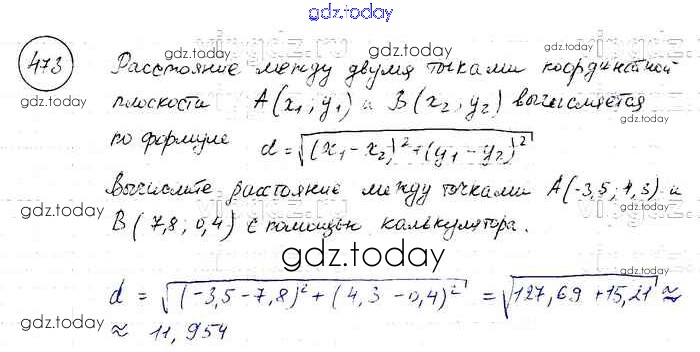 gdz.today
473
gdz.today
gdz.today
Расстояние между двумя точками координатной
плоскости A(x₁; y₁) и B(x₂; y₂) вычисляется
по формуле d = √((x₁ - x₂)² + (y₁ - y₂)²)
Вычислите расстояние между точками A(-3,5; 4,3) и
B(7,8; 0,4) с помощью калькулятора.
gdz.today
gdz.today
gdz.today
gdz.today
gdz.today
gdz.today
d = √((-3,5 - 7,8)² + (4,3 - 0,4)²) = √(127,69 + 15,21) ≈
≈ 11,954
gdz.today
gdz.today